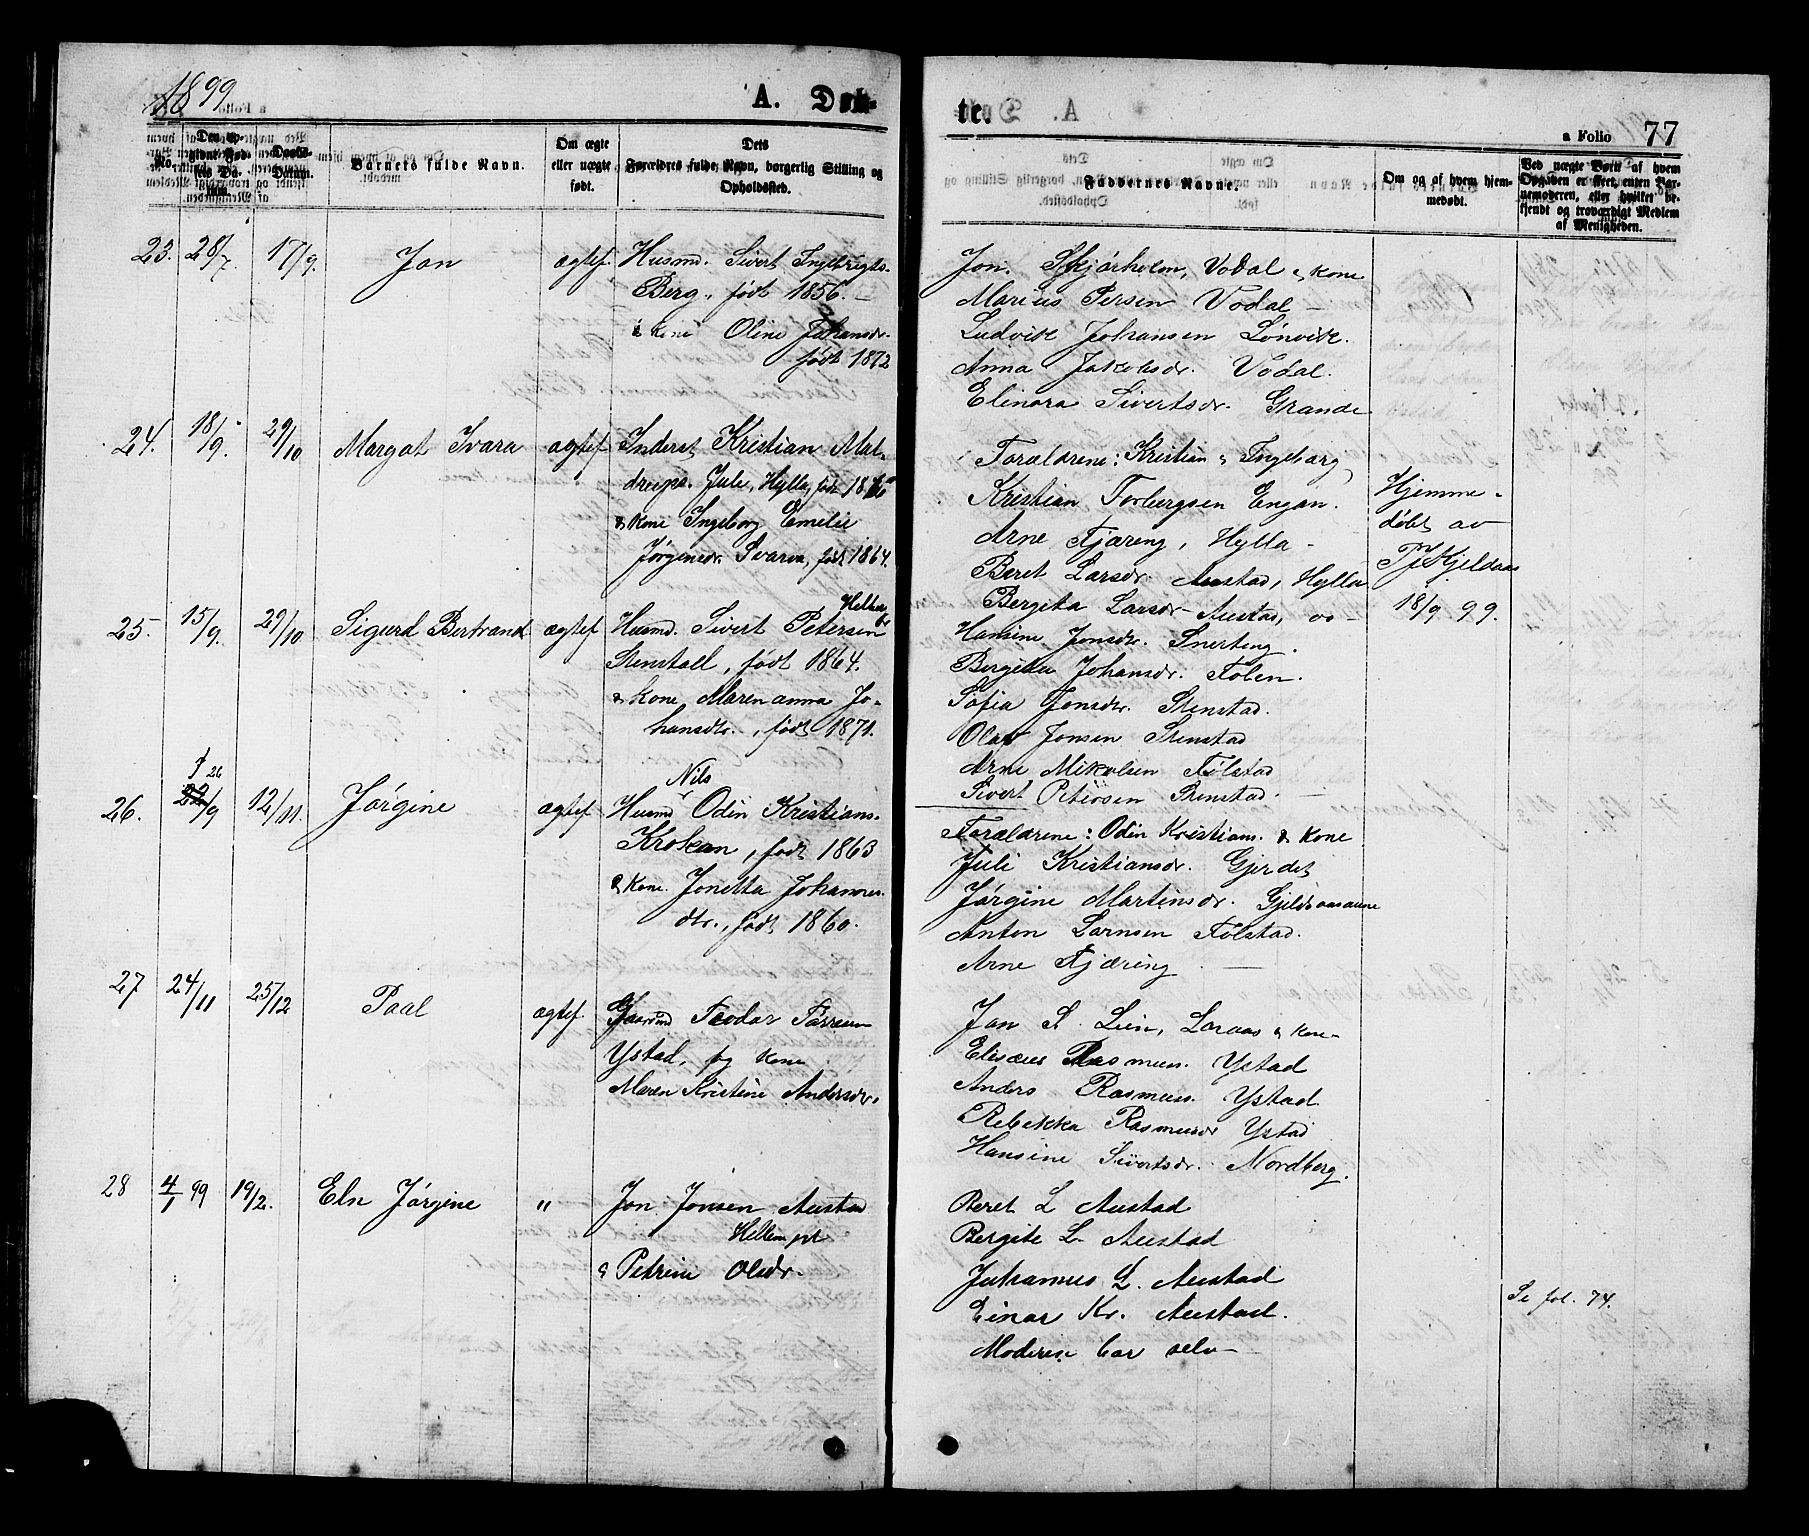 1899
A. Døb-
te.
a Folio 77
No.
Den opgivne Fødsels Datum.
Daabs-Datum.
Barnets fulde Navn.
Om ægte eller uægte født.
Dets Forældres fulde Navn, borgerlig Stilling og Opholdssted.
Faddernes Navne.
Om og af hvem hjemmedøbt.
Ved uægte Børn af hvem Opgiven er skeet, enten Barnemoderen, eller hvilket bekjendt og troværdigt Medlem af Menigheden.
23. 28/7. 17/9. Jon ægtef.
Husmd. Sivert Ingebrigts.
Berg, født 1856.
& kone Oline Johansdr.
født 1872
Jon. Skjørholm, Vodal & kone
Marius Persen Vodal
Ludvik Johansen Lønvik.
Anna Jakobsdr. Vodal.
Elinora Sivertsdr. Grande
24. 18/9. 29/10 Margot Ivara ægtef.
Inderst Kristian
Juli, Hylla, født
& kone Ingeborg Emelie
Jørgensdr. Svarva, født 1864.
Forældrene: Kristian & Ingeborg
Kristian Torbergsen Engan.
Arne Fjæring, Hylla -
Beret Larsdr. Austad, Hylla
Bergita Larsdr - Austad, do -
Hjemme-
døbt av
Kjeldaas
18/9 99.
25. 15/9. 29/10 Sigurd Bertrand ægtef
Husmd. Sivert Petersen
Stenstall, født 1864.
& kone Marenanna Jo-
hansdtr., født 1871.
Hansine Jonsdr. Snerting.
Bergitta Johansdr. Folen.
Sofia Jonsdr. Stenstad.
Olav Jonsen Stenstad
Arne Mikalsen Følstad
Sivert Petersen Stenstad.
26. 22/9 26 12/11. Jørgine ægtef.
Nils
Husmd Odin Kristians.
Krokan, født 1863
& kone. Jonetta Johannes-
dtr., født 1860.
Forældrene: Odin Kristians. & kone
Juli Kristiansdr. Gjerdet
Jørgine Martinsdr.
Anton Larnsen Følstad.
Arne Fjæring
27 24/11 25/12 Paal ægtef.
Gaarmd Teodor
Ystad, og kone
Maren Kristine Andersdr.
Jon S. Lien, Loraas & kone
Eliseus Rasmuss. Ystad
Anders Rasmuss. Ystad
Rebekka Rasmusdr Ystad
Hansine Sivertsdr. Nordberg.
28 4/1 99 19/2. Eln Jørgine "
Jon Jonsen Austad
Hellem pl
& Petrine Olsdr.
Beret L Austad
Bergite L. Austad
Johannes L. Austad
Einar Kr. Austad.
Moderen bar selv -
Se fol. 74.